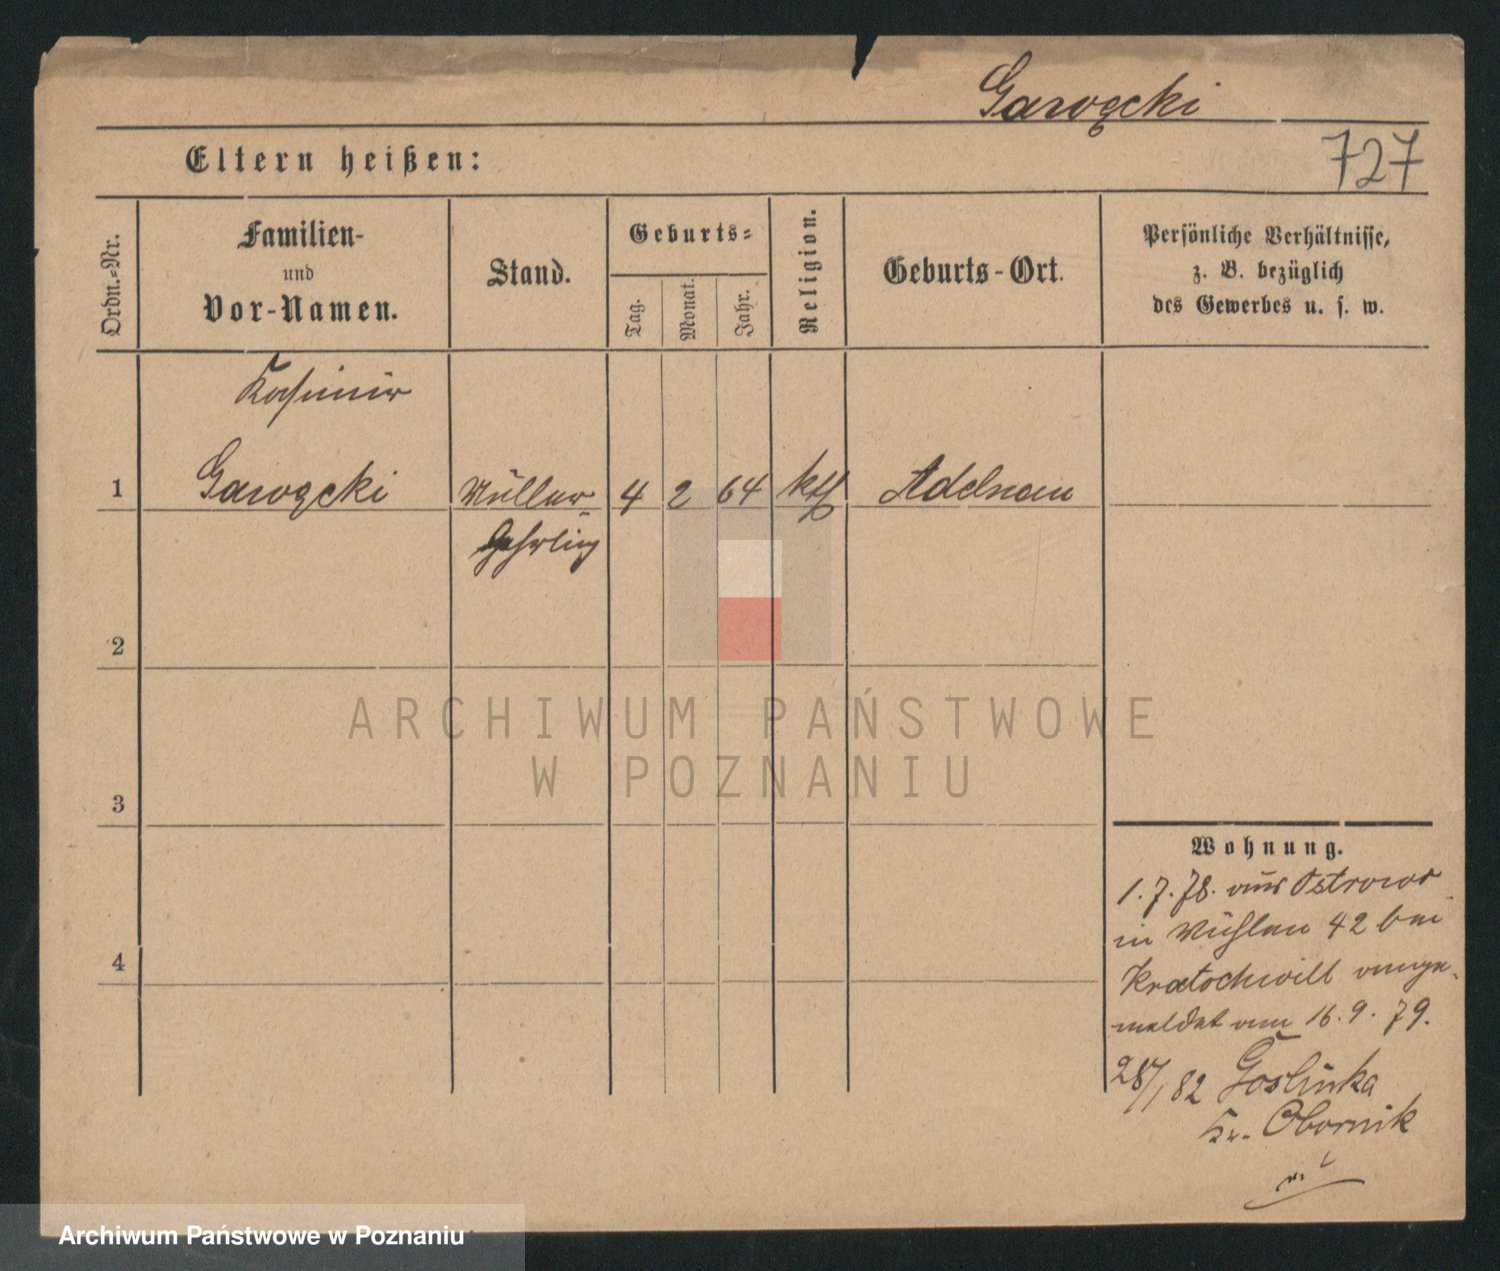 Garogcki
727
Eltern heißen:
Ordn.-Nr.
Familien-
und
Vor-Namen.
Stand.
Geburts-
Tag.
Monat.
Jahr.
Religion.
Geburts-Ort.
Persönliche Verhältnisse,
z. B. bezüglich
des Gewerbes u. s. w.
Kasimir
1 Müller- 4 2 64 kth Adelnau
2
3
4
Wohnung.
1.7.78. aus Ostrowo
in Mühlen 42 bei
Kratochwill ange-
meldet am 16.9.79.
82 Goslinka
Kr. Obornik
ARCHIWUM PAŃSTWOWE
W POZNANIU
Archiwum Państwowe w Poznaniu